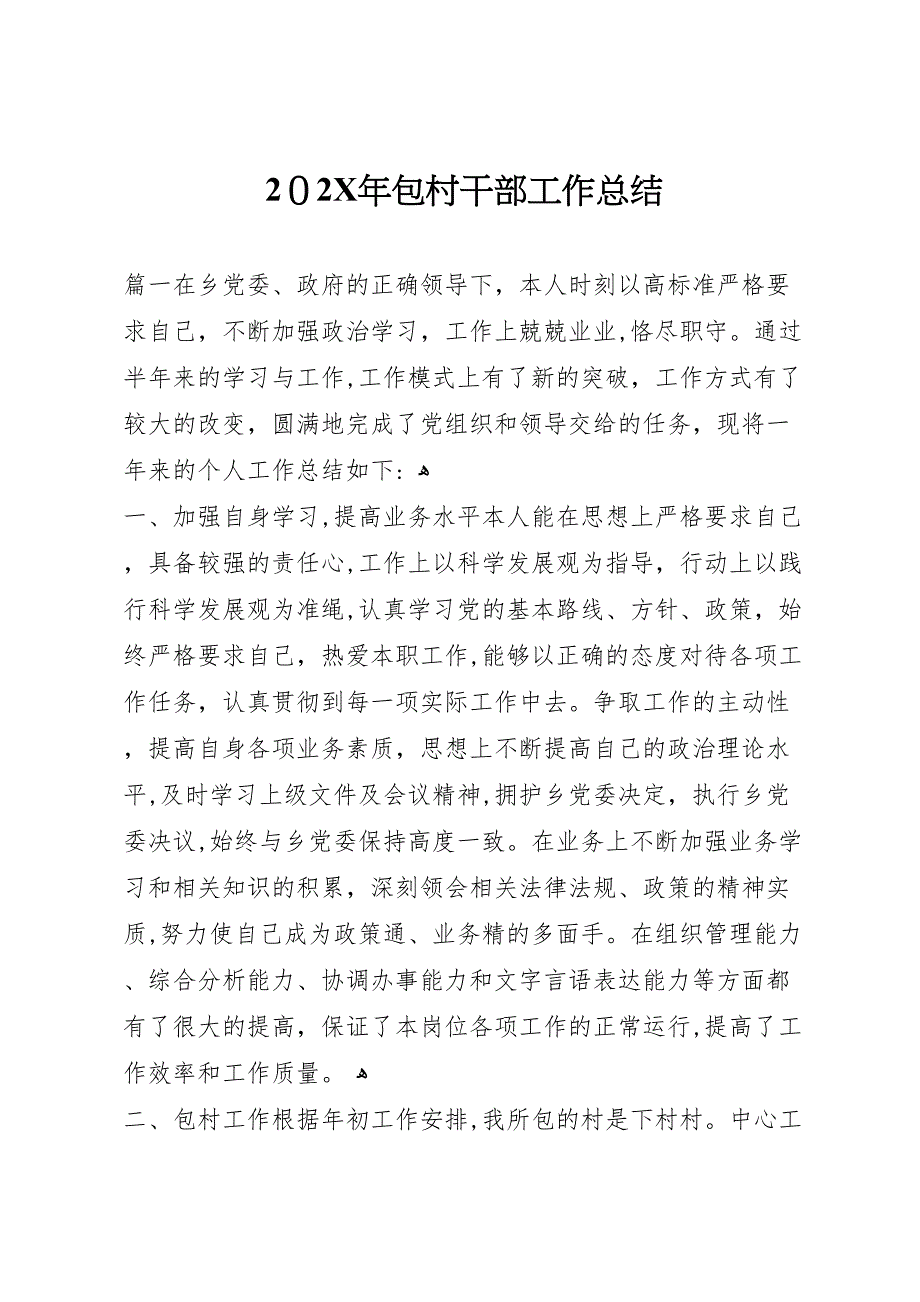 202X年包村干部工作总结
篇一在乡党委、政府的正确领导下，本人时刻以高标准严格要
求自己，不断加强政治学习，工作上兢兢业业,恪尽职守。通过
半年来的学习与工作,工作模式上有了新的突破，工作方式有了
较大的改变，圆满地完成了党组织和领导交给的任务，现将一
年来的个人工作总结如下: ﻫ
一、加强自身学习,提高业务水平本人能在思想上严格要求自己
，具备较强的责任心,工作上以科学发展观为指导，行动上以践
行科学发展观为准绳,认真学习党的基本路线、方针、政策，始
终严格要求自己，热爱本职工作,能够以正确的态度对待各项工
作任务，认真贯彻到每一项实际工作中去。争取工作的主动性
，提高自身各项业务素质，思想上不断提高自己的政治理论水
平,及时学习上级文件及会议精神,拥护乡党委决定，执行乡党
委决议,始终与乡党委保持高度一致。在业务上不断加强业务学
习和相关知识的积累，深刻领会相关法律法规、政策的精神实
质,努力使自己成为政策通、业务精的多面手。在组织管理能力
、综合分析能力、协调办事能力和文字言语表达能力等方面都
有了很大的提高，保证了本岗位各项工作的正常运行,提高了工
作效率和工作质量。 ﻫ
二、包村工作根据年初工作安排,我所包的村是下村村。中心工